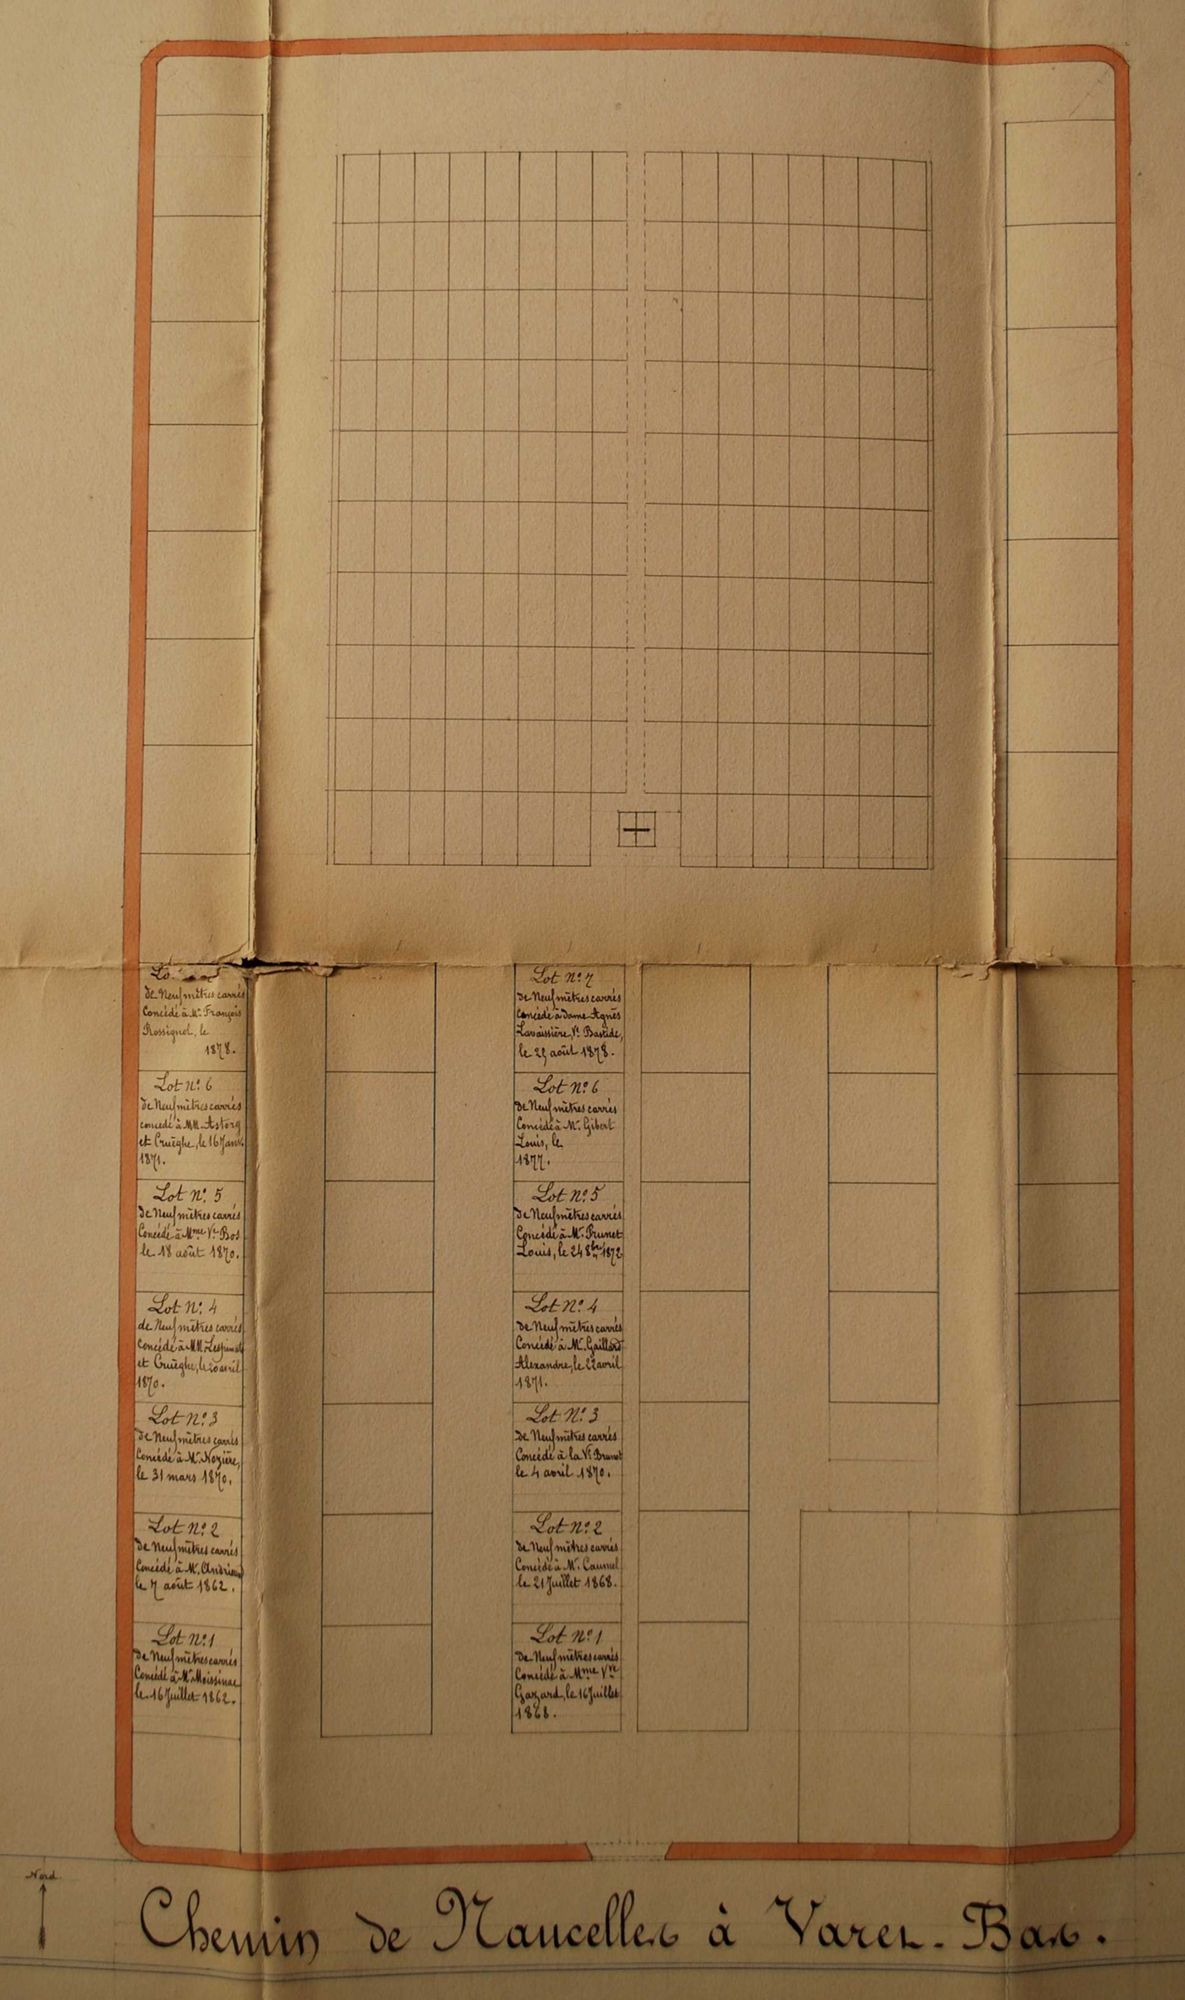 de Neuf mètres carrés
Concédé à Mr. François
Rossignol, le
1878.
Lot n° 6
de Neuf mètres carrés
concédé à MM. Astorg
et Cruèghe, le 16 Janv.
1871.
Lot n° 5
de Neuf mètres carrés
Concédé à Mme Ve Bos
le 18 août 1870.
Lot n° 4
de Neuf mètres carrés
Concédé à MM. Lespinat
et Cruèghe, le 20 avril
1870.
Lot n° 3
de Neuf mètres carrés
Concédé à Mr. Nozière,
le 31 mars 1870.
Lot n° 2
de Neuf mètres carrés
Concédé à M. Andrieux
le 7 août 1862.
Lot n° 1
de Neuf mètres carrés
Concédé à Mr Moissinac
le 16 Juillet 1862.
Lot n° 7
de Neuf mètres carrés
Concédé à Dame Agnès
Lavaissière, Ve Bastide,
le août 1878.
Lot n° 6
de Neuf mètres carrés
Concédé à Mr. Gibert
Louis, le
1877.
Lot n° 5
de Neuf mètres carrés
Concédé à Mr. Prunet
Louis, le 24 8bre 1872
Lot n° 4
de Neuf mètres carrés
Concédé à Mr. Gaillard
Alexandre, le 22 avril
1871.
Lot n° 3
de Neuf mètres carrés
Concédé à la Ve Brunet
le 4 avril 1870.
Lot n° 2
de Neuf mètres carrés
Concédé à M. Caumel
le 21 Juillet 1868.
Lot n° 1
de Neuf mètres carrés
Concédé à Mme Vve
Gazard, le 16 Juillet
1868.
Nord
Chemin de Naucelles à Varet-Bas.